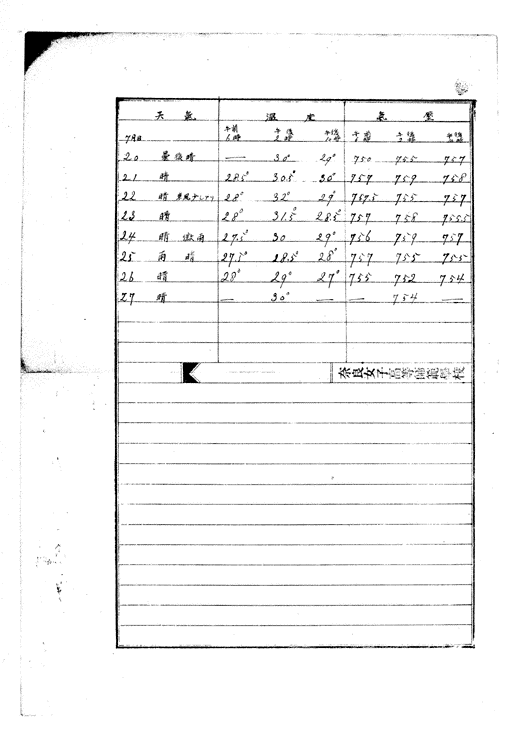 天氣 溫度 氣壓
7月日 午前6時 午後2時 午後10時 午前6時 午後2時 午後10時
20 曇後晴 — 30° 29° 750 755 757
21 晴 28.5° 30.5° 30° 757 759 758
22 晴 28° 32° 29° 757.5 755 757
23 晴 28° 31.5° 28.5° 757 758 755.5
24 晴 微雨 27.5° 30 29° 756 759 757
25 雨 晴 27.5° 28.5° 28° 757 755 755
26 晴 28° 29° 27° 755 752 754
27 晴 — 30° — — 754 —
奈良女子高等師範學校